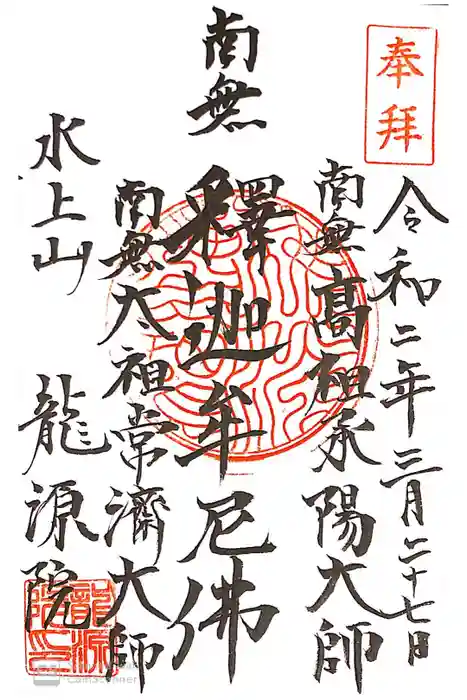 奉拝
令和二年三月二十七日
南無高祖承陽大師
南無釋迦牟尼佛
南無太祖常濟大師
水上山 龍源院
龍源院印
CamScanner